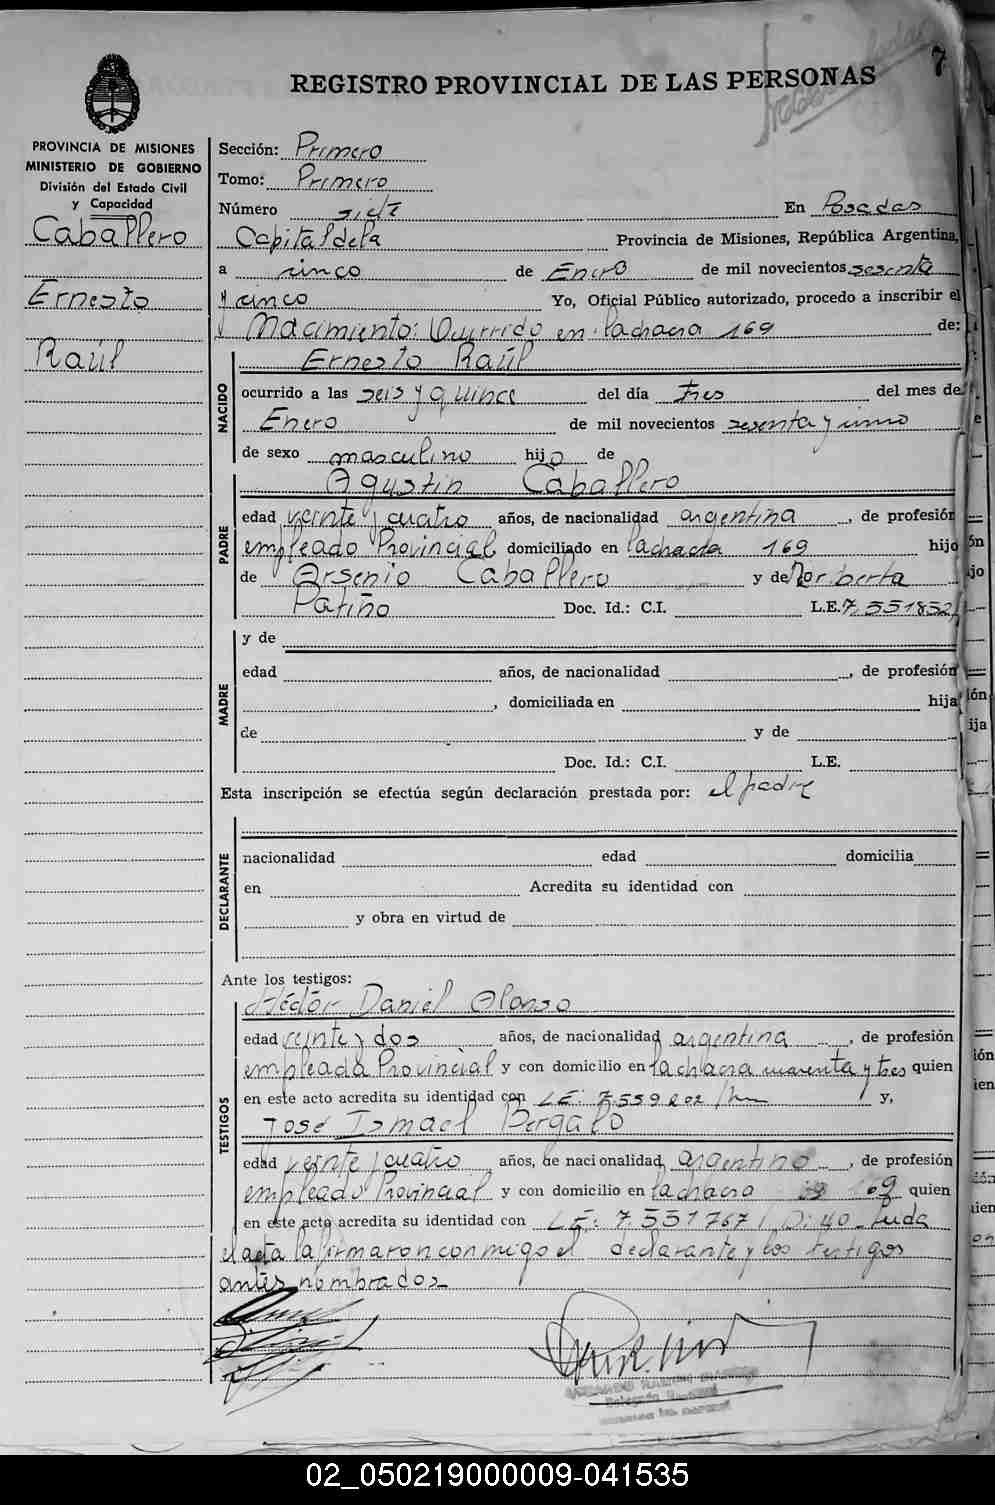 7
REGISTRO PROVINCIAL DE LAS PERSONAS
PROVINCIA DE MISIONES
MINISTERIO DE GOBIERNO
División del Estado Civil
y Capacidad
Caballero
Ernesto
Raúl
Sección: Primero
Tomo: Primero
Número siete En Posadas
Capital de la Provincia de Misiones, República Argentina,
a cinco de Enero de mil novecientos sesenta
y cinco Yo, Oficial Público autorizado, procedo a inscribir el
Nacimiento: Ocurrido en lachacra 169 de:
NACIDO
Ernesto Raúl
ocurrido a las seis y quince del día tres del mes de
Enero de mil novecientos sesenta y uno
de sexo masculino hijo de
PADRE
Agustin Caballero
edad veinte y cuatro años, de nacionalidad argentina, de profesión
empleado Provincial domiciliado en lachacra 169 hijo
de Arsenio Caballero y de Norberta
Patiño Doc. Id.: C.I. L.E. 7.551852
MADRE
y de
edad años, de nacionalidad , de profesión
, domiciliada en hija
de y de
Doc. Id.: C.I. L.E.
Esta inscripción se efectúa según declaración prestada por: el padre
DECLARANTE
nacionalidad edad domicilia
en Acredita su identidad con
y obra en virtud de
Ante los testigos:
TESTIGOS
Héctor Daniel Alonso
edad veinte y dos años, de nacionalidad argentina, de profesión
empleada Provincial y con domicilio en lachacra cuarenta y tres quien
en este acto acredita su identidad con LE: 7.559202 y,
José Ismael Bergalo
edad veinte y cuatro años, de nacionalidad argentino, de profesión
empleado Provincial y con domicilio en lachacra 169 quien
en este acto acredita su identidad con LE: 7.551767 D: 40 - Leida
el acta la firmaron conmigo el declarante y los testigos
antes nombrados
02_050219000009-041535